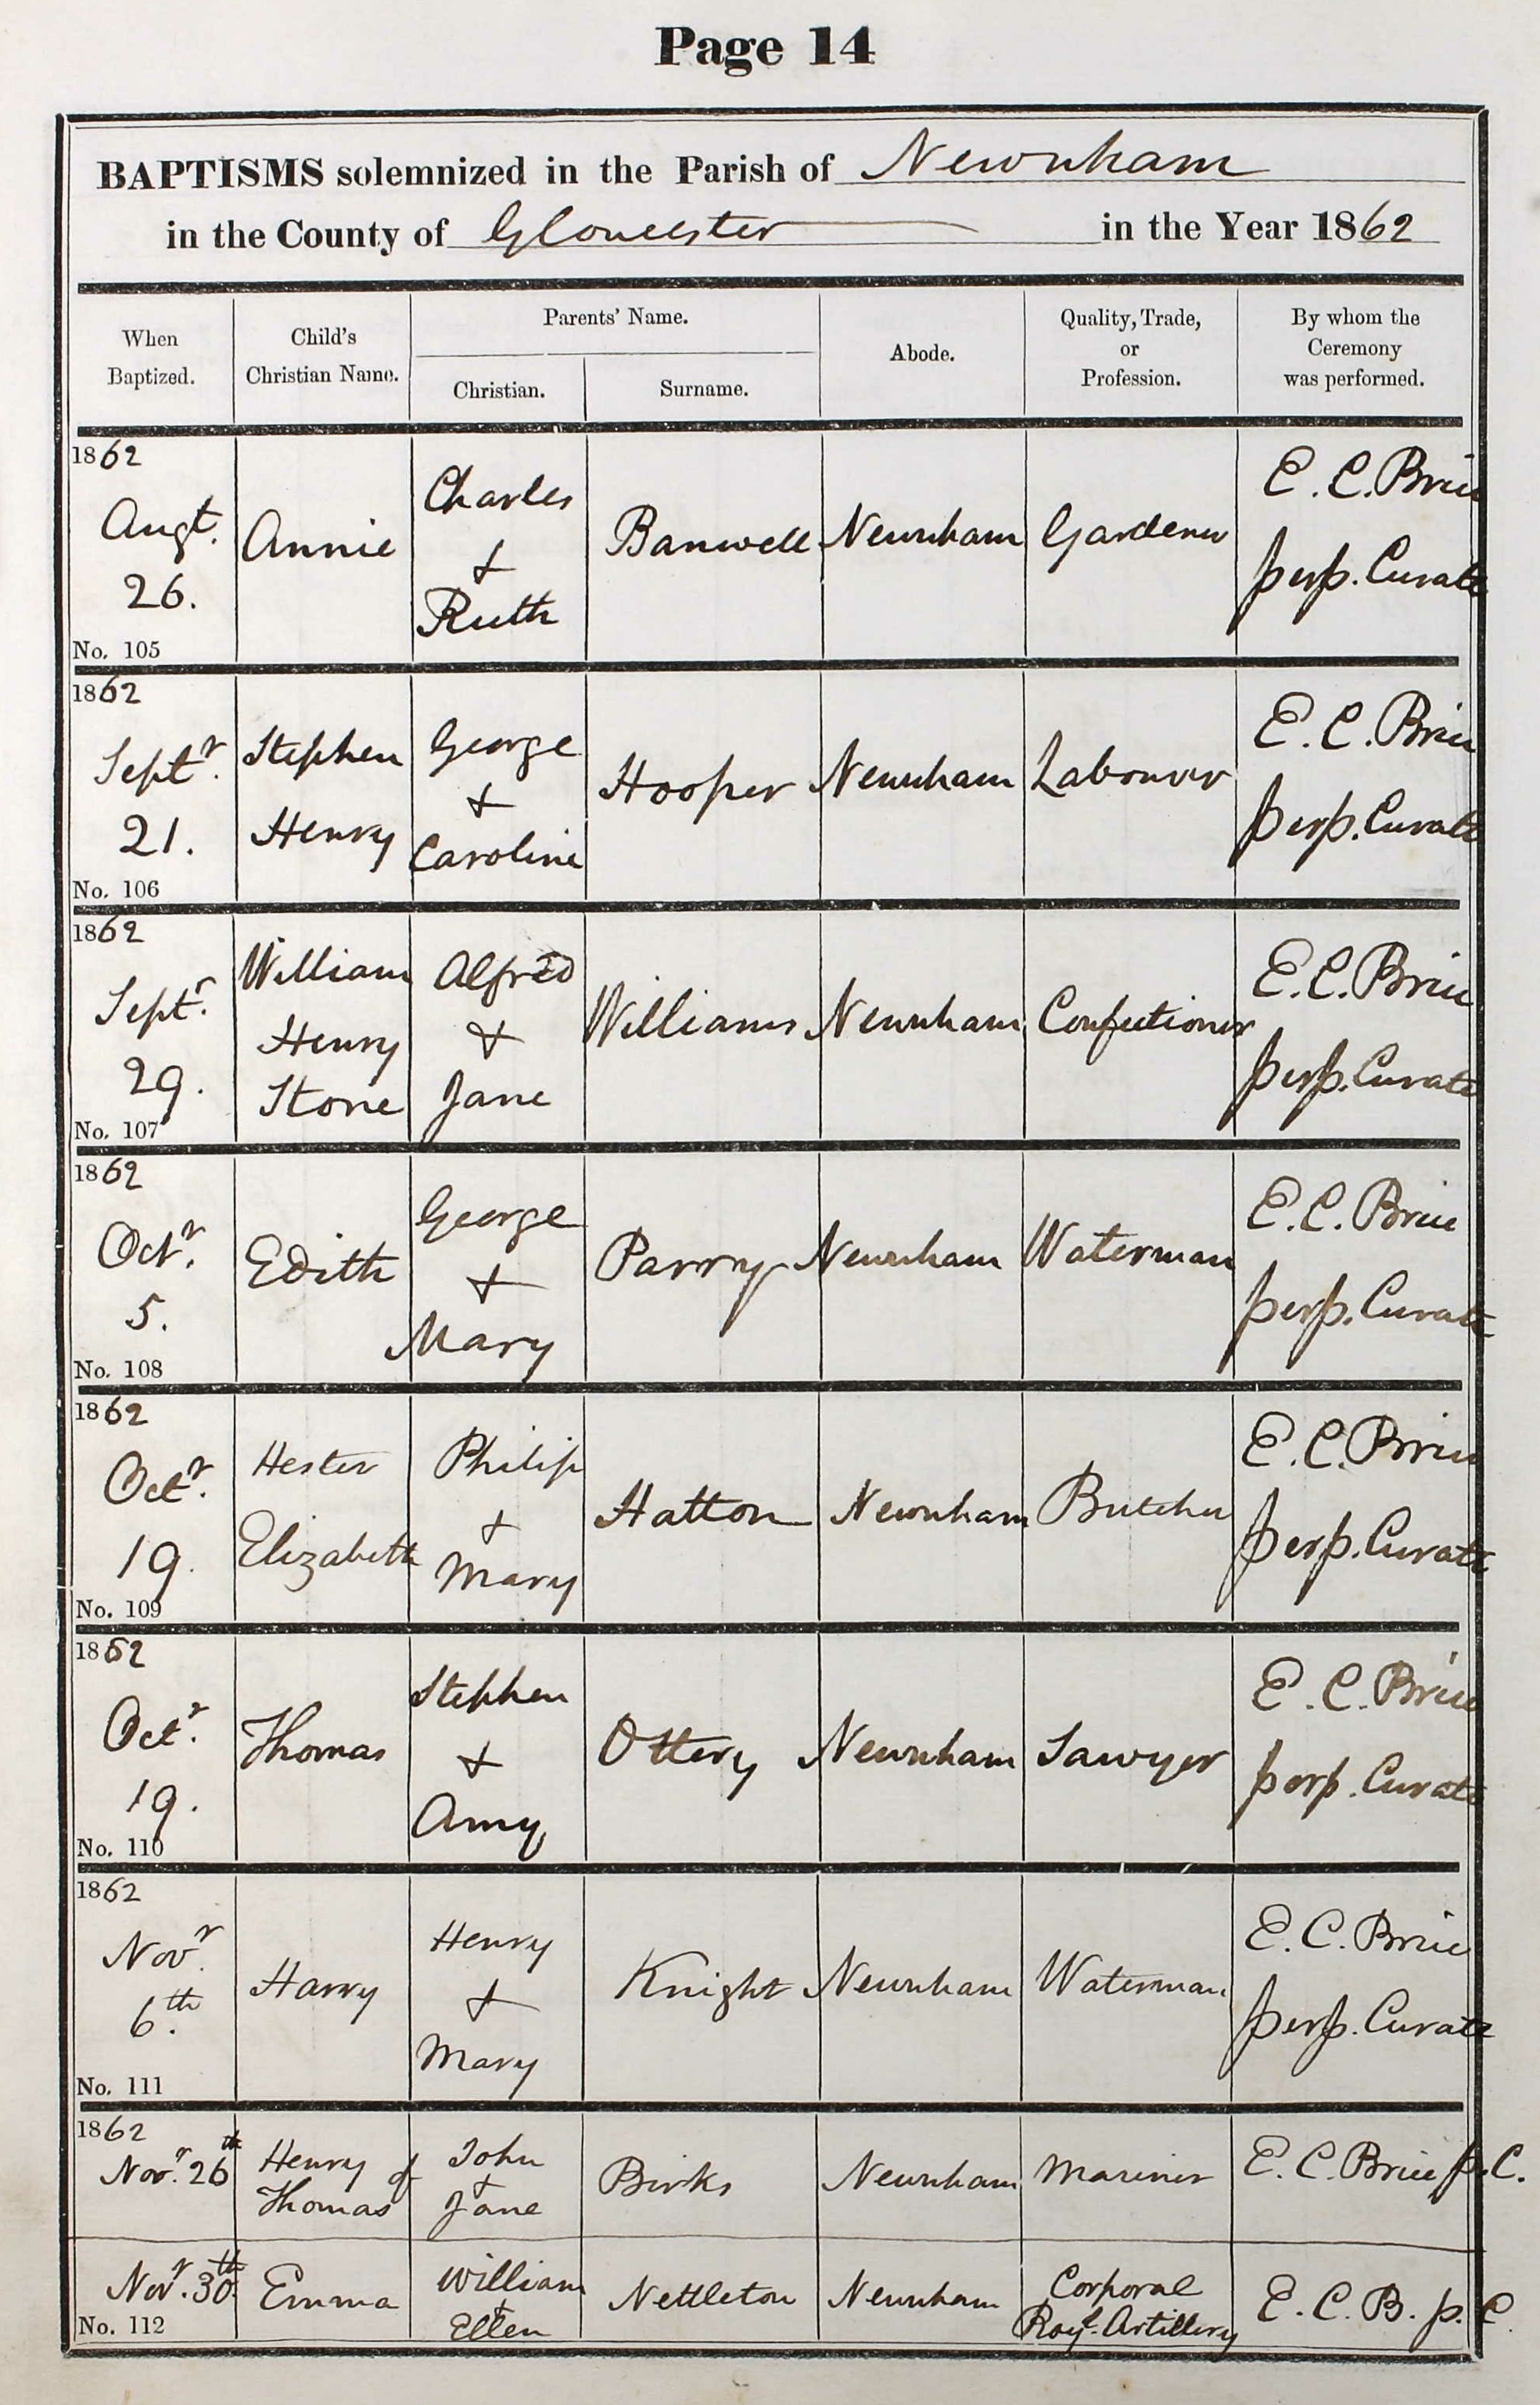 Page 14
BAPTISMS solemnized in the Parish of Newnham
in the County of Gloucester in the Year 1862
When Baptized. Child's Christian Name. Parents' Name. Christian. Surname. Abode. Quality, Trade, or Profession. By whom the Ceremony was performed.
1862
Augt. 26.
Annie
Charles
&
Ruth
Banwell
Newnham
Gardener
E. C. Brice
perp. Curate
No. 105
1862
Septr. 21.
Stephen
Henry
George
&
Caroline
Hooper
Newnham
Labourer
E. C. Brice
perp. Curate
No. 106
1862
Septr. 29.
William
Henry
Stone
Alfred
&
Jane
Williams
Newnham
Confectioner
E. C. Brice
perp. Curate
No. 107
1862
Octr. 5.
Edith
George
&
Mary
Parry
Newnham
Waterman
E. C. Brice
perp. Curate
No. 108
1862
Octr. 19.
Hester
Elizabeth
Philip
&
Mary
Hatton
Newnham
Butcher
E. C. Brice
perp. Curate
No. 109
1862
Octr. 19.
Thomas
Stephen
&
Amy
Ottery
Newnham
Sawyer
E. C. Brice
perp. Curate
No. 110
1862
Novr. 6.th
Harry
Henry
&
Mary
Knight
Newnham
Waterman
E. C. Brice
perp. Curate
No. 111
1862
Novr. 26th
Henry
Thomas
of
John
&
Jane
Birks
Newnham
Mariner
E. C. Brice p. C.
Novr. 30th
Emma
William
&
Ellen
Nettleton
Newnham
Corporal
Royl. Artillery
E. C. B. p. C.
No. 112